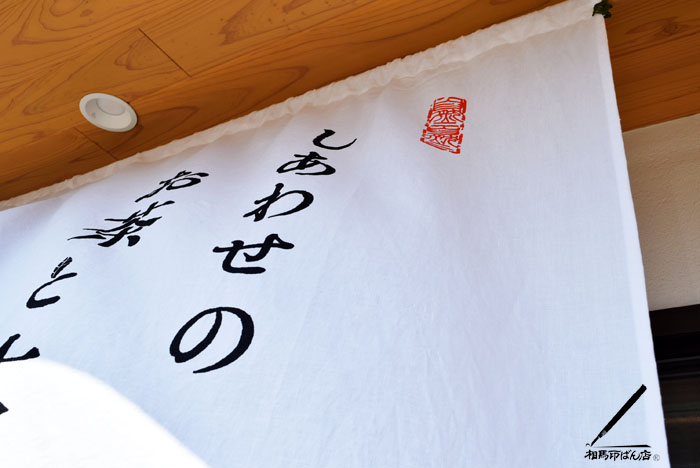 しあわせの
お茶と
相馬印ばん店®